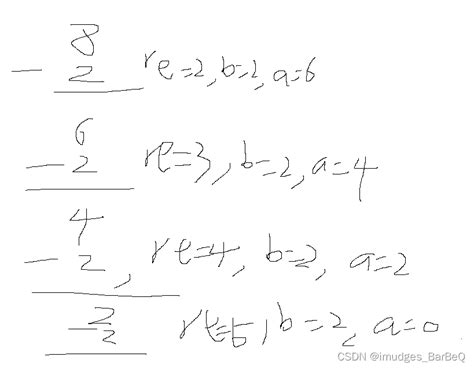 8
- 2 re=2,b=2,a=6
6
-2 re=3,b=2,a=4
4
-2, re=4, b=2, a=2
2
-2 re=5,b=2,a=0
CSDN @imudges_BarBeQ